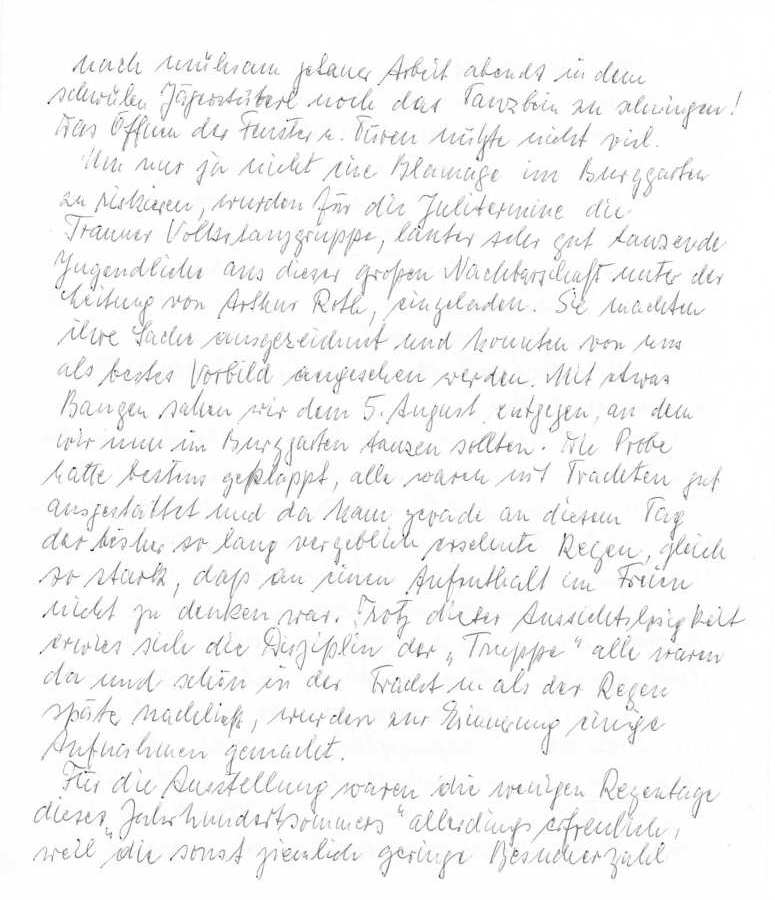 nach mühsam getaner Arbeit abends in dem
schwülen Jägerstüberl noch das Tanzbein zu schwingen!
Das Öffnen der Fenster u. Türen nützte nicht viel.
Um nur ja nicht eine Blamage im Burggarten
zu riskieren, wurden für die Julitermine die
Trauner Volkstanzgruppe, lauter sehr gut tanzende
Jugendliche aus dieser großen Nachbarschaft unter der
Leitung von Arthur Roth, eingeladen. Sie machten
ihre Sache ausgezeichnet und konnten von uns
als bestes Vorbild angesehen werden. Mit etwas
Bangen sahen wir dem 5. August entgegen, an dem
wir nun im Burggarten tanzen sollten. Die Probe
hatte bestens geklappt, alle waren mit Trachten gut
ausgestattet und da kam gerade an diesem Tag
der bisher so lang vergeblich ersehnte Regen, gleich
so stark, daß an einen Aufenthalt im Freien
nicht zu denken war. Trotz dieser Aussichtslosigkeit
erwies sich die Disziplin der „Truppe“ alle waren
da und schön in der Tracht u. als der Regen
später nachließ, wurden zur Erinnerung einige
Aufnahmen gemacht.
Für die Ausstellung waren die wenigen Regentage
dieses „Jahrhundertsommers“ allerdings erfreulich,
weil die sonst ziemlich geringe Besucherzahl